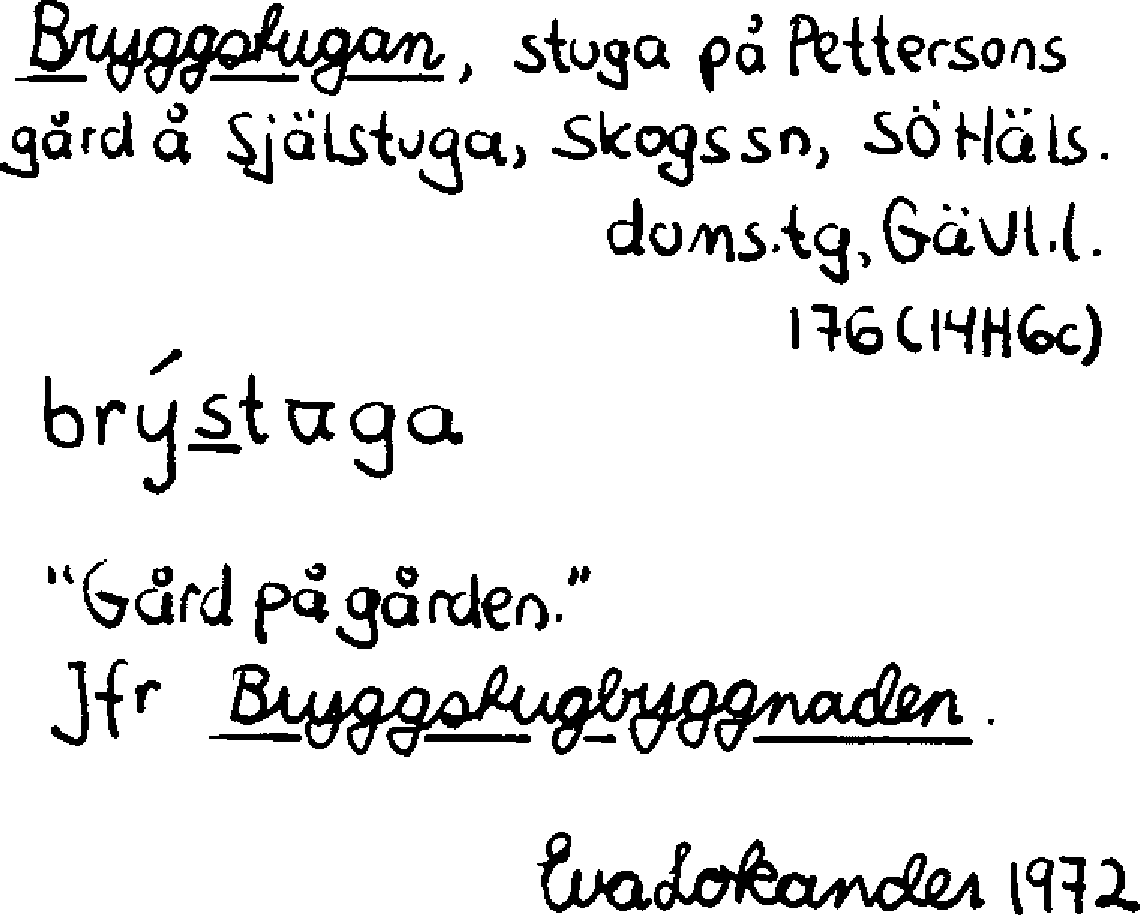 Bryggstugan, stuga på Pettersons
gård å Själstuga, Skogs sn, SÖ Häls.
doms.tg, Gävl.l.
176 (14H6c)
brýstuga
"Gård på gården."
Jfr Bryggstugbyggnaden.
Eva Lokander 1972